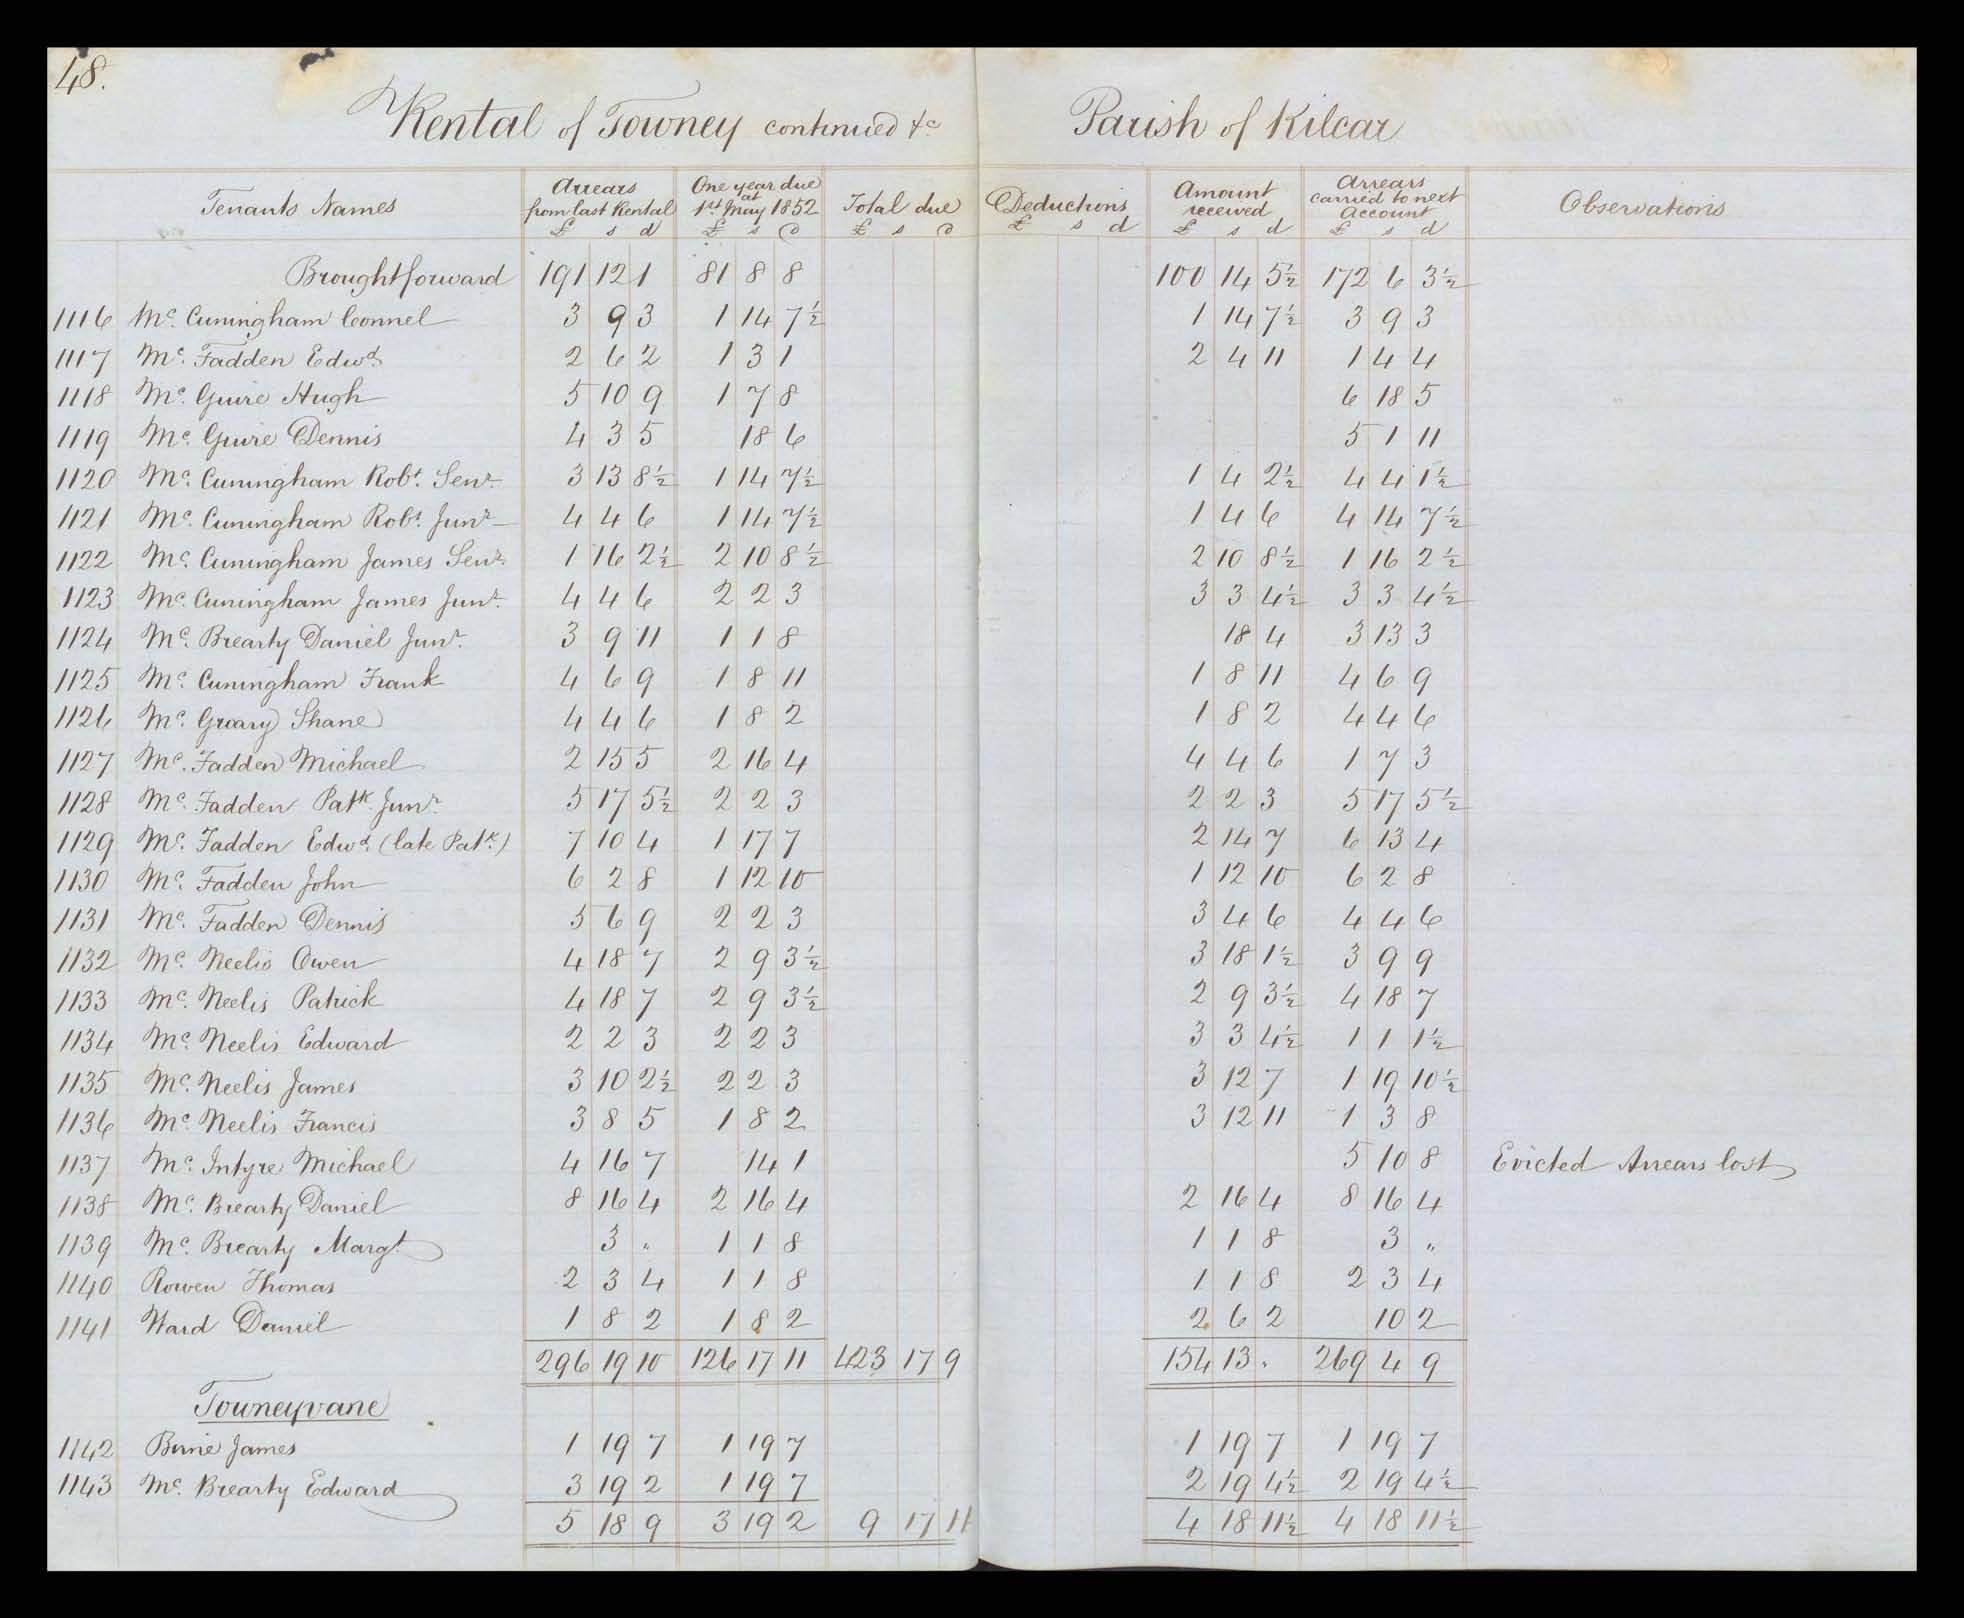 48.
Rental of Towney continued &c Parish of Kilcar
Tenants Names | Arrears from last Rental £ s d | One year due at 1st May 1852 £ s d | Total due £ s d | Deductions £ s d | Amount received £ s d | Arrears carried to next account £ s d | Observations
Brought forward 191 12 1 81 8 8 100 14 5½ 172 6 3½
1116 Mc. Cuningham Connel 3 9 3 1 14 7½ 1 14 7½ 3 9 3
1117 Mc. Fadden Edwd. 2 6 2 1 3 1 2 4 11 1 4 4
1118 Mc. Guire Hugh 5 10 9 1 7 8 6 18 5
1119 Mc. Guire Dennis 4 3 5 18 6 5 1 11
1120 Mc. Cuningham Robt. Senr. 3 13 8½ 1 14 7½ 1 4 2½ 4 4 1½
1121 Mc. Cuningham Robt. Junr. 4 4 6 1 14 7½ 1 4 6 4 14 7½
1122 Mc. Cuningham James Senr. 1 16 2½ 2 10 8½ 2 10 8½ 1 16 2½
1123 Mc. Cuningham James Junr. 4 4 6 2 2 3 3 3 4½ 3 3 4½
1124 Mc. Brearty Daniel Junr. 3 9 11 1 1 8 18 4 3 13 3
1125 Mc. Cuningham Frank 4 6 9 1 8 11 1 8 11 4 6 9
1126 Mc. Geary Shane 4 4 6 1 8 2 1 8 2 4 4 6
1127 Mc. Fadden Michael 2 15 5 2 16 4 4 4 6 1 7 3
1128 Mc. Fadden Patk. Junr. 5 17 5½ 2 2 3 2 2 3 5 17 5½
1129 Mc. Fadden Edwd. (late Patk.) 7 10 4 1 17 7 2 14 7 6 13 4
1130 Mc. Fadden John 6 2 8 1 12 10 1 12 10 6 2 8
1131 Mc. Fadden Dennis 5 6 9 2 2 3 3 4 6 4 4 6
1132 Mc. Neelis Owen 4 18 7 2 9 3½ 3 18 1½ 3 9 9
1133 Mc. Neelis Patrick 4 18 7 2 9 3½ 2 9 3½ 4 18 7
1134 Mc. Neelis Edward 2 2 3 2 2 3 3 3 4½ 1 1 1½
1135 Mc. Neelis James 3 10 2½ 2 2 3 3 12 7 1 19 10½
1136 Mc. Neelis Francis 3 8 5 1 8 2 3 12 11 1 3 8
1137 Mc. Intyre Michael 4 16 7 14 1 5 10 8 Evicted Arrears lost
1138 Mc. Brearty Daniel 8 16 4 2 16 4 2 16 4 8 16 4
1139 Mc. Brearty Margt. 3 „ 1 1 8 1 1 8 3 „
1140 Rowen Thomas 2 3 4 1 1 8 1 1 8 2 3 4
1141 Ward Daniel 1 8 2 1 8 2 2 6 2 10 2
296 19 10 126 17 11 423 17 9 154 13 „ 269 4 9
Towneyvane
1142 Birne James 1 19 7 1 19 7 1 19 7 1 19 7
1143 Mc. Brearty Edward 3 19 2 1 19 7 2 19 4½ 2 19 4½
5 18 9 3 19 2 9 17 11 4 18 11½ 4 18 11½